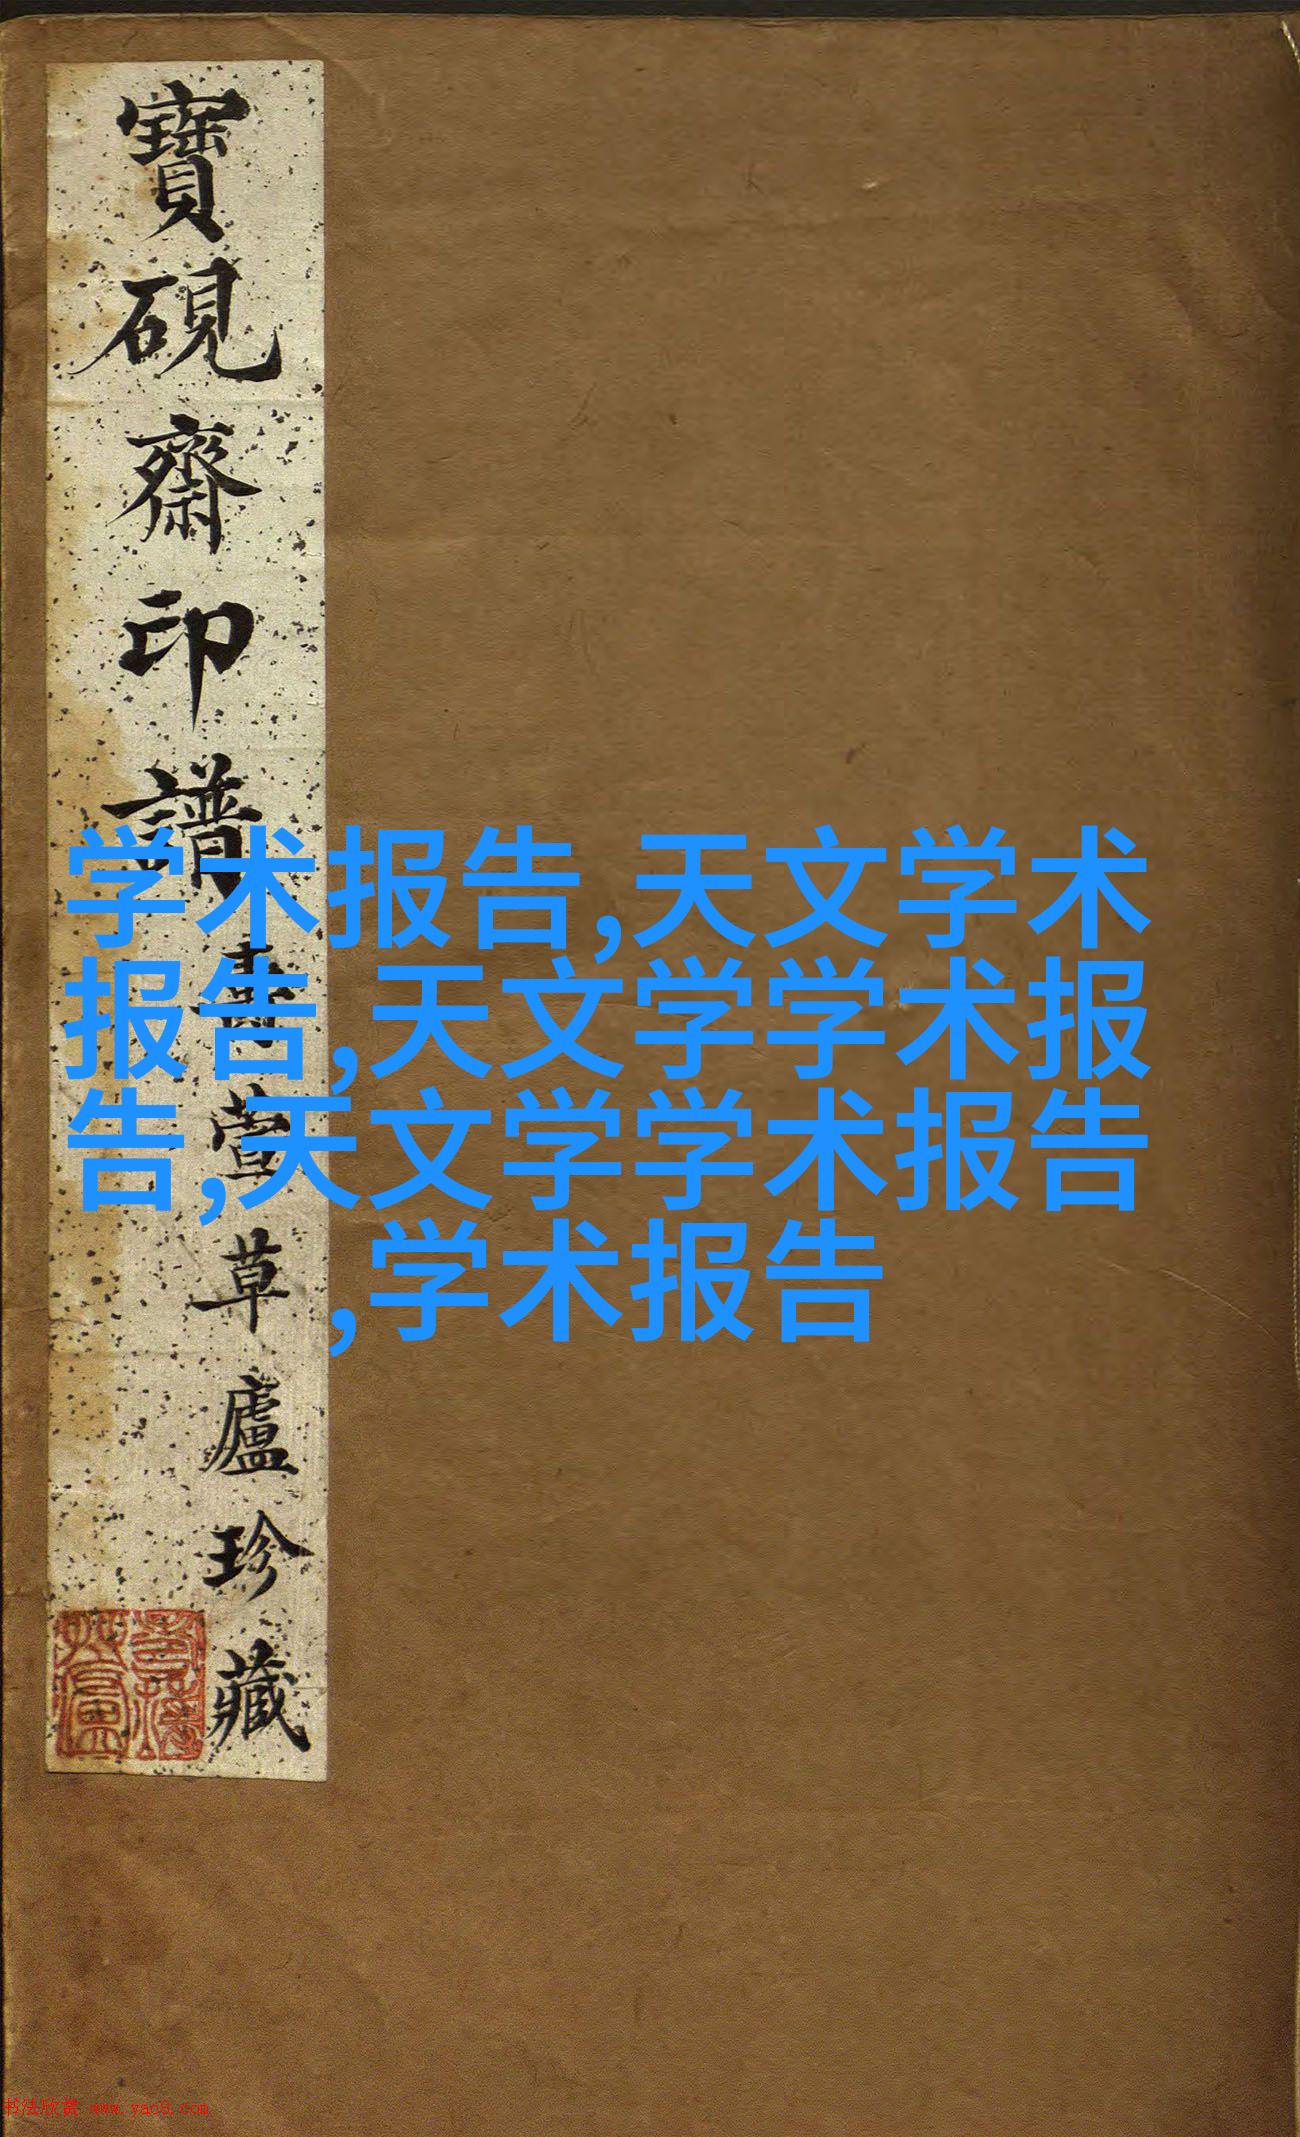 寶硯齋印譜
草廬珍藏
学术报告,天文学术
报告,天文学学术报
告,天文学学术报告
,学术报告
书法欣赏 www.yac8.com